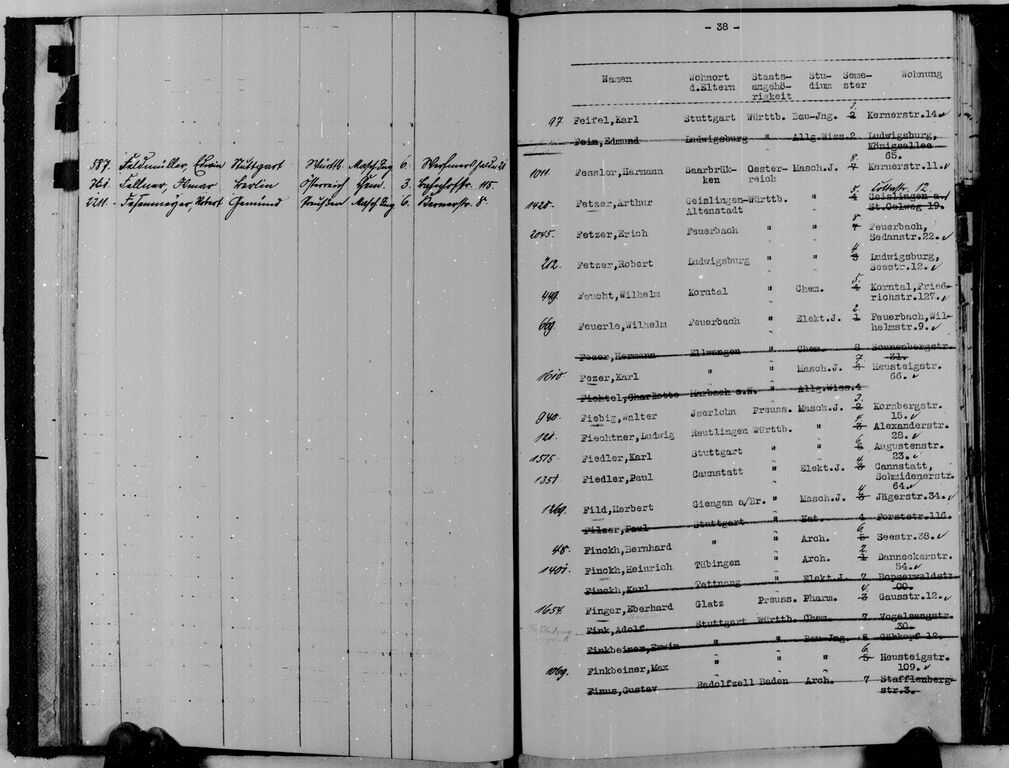 587. Feldmüller, Erwin Stuttgart Württ. Masch. Ing 6.
761. Fellner, Otmar Berlin Österreich Chem. 3. Bahnhofstr. 115.
2211. Fesenmeyer, Robert Gemünd Preußen Masch. Ing 6. Bernerstr. 8
- 38 -
Namen Wohnort d.Eltern Staats-angehö-rigkeit Stu-dium Seme-ster Wohnung
97 Feifel, Karl Stuttgart Württb. Bau-Jng. 2 Kernerstr.14.✓
Fein, Edmund Ludwigsburg " Allg.Wiss.2 Ludwigsburg,
Königsallee
65.
8.
1011. Fessler, Hermann Saarbrük- Oester- Masch.J. 4 Kernerstr.11.✓
ken reich
5. 12
1428. Fetzer, Arthur Geislingen- Württb. " 4 Geislingen a/
Altenstadt St.Oelweg 19.
8
2045. Fetzer, Erich Feuerbach " " 7 Feuerbach,
Sedanstr.22.✓
4
212. Fetzer, Robert Ludwigsburg " " 3 Ludwigsburg,
Seestr.12.✓
5.
449. Feucht, Wilhelm Korntal " Chem. 4 Korntal,Fried-
richstr.127.✓
2.
669. Feuerle, Wilhelm Feuerbach " Elekt.J. 1 Feuerbach,Wil-
helmstr.9.✓
Fezer, Hermann Ellwangen " Chem. 8 Sonnenbergstr.
31.
7
1610. Fezer, Karl " " Masch.J. 6 Heusteigstr.
66.✓
Fichtel, Charlotte Marbach a.N. " Allg.Wiss.4
3.
940. Fiebig, Walter Jserlohn Preuss. Masch.J. 2 Kornbergstr.
15.✓
4.
121. Fiechtner, Ludwig Reutlingen Württb. " 3 Alexanderstr.
28.✓
6
1575. Fiedler, Karl Stuttgart " " 5 Augustenstr.
23.✓
4
1351. Fiedler, Paul Cannstatt " Elekt.J. 3 Cannstatt,
Schmidenerstr.
64.✓
4
1269. Fild, Herbert Giengen a/Br. " Masch.J. 3 Jägerstr.34.✓
Filzer, Paul Stuttgart " Nat. 4 Forststr.116.
6
48. Finckh, Bernhard " " Arch. 5 Seestr.38.✓
2
1401. Finckh, Heinrich Tübingen " Arch. 1 Danneckerstr.
54.✓
Finckh, Karl Tettnang " Elekt.J. 7 Bopserwaldstr.
4.
1654. Finger, Eberhard Glatz Preuss. Pharm. 3 Gausstr.12.✓
Fink, Adolf Stuttgart Württb. Chem. 7 Vogelsangstr.
30.
Finkbeiner, Erwin " " Bau-Jng. 8 12.
6.
1069. Finkbeiner, Max " " " 5 Heusteigstr.
109.✓
Finus, Gustav Radolfzell Baden Arch. 7 Stafflenberg-
str.3.